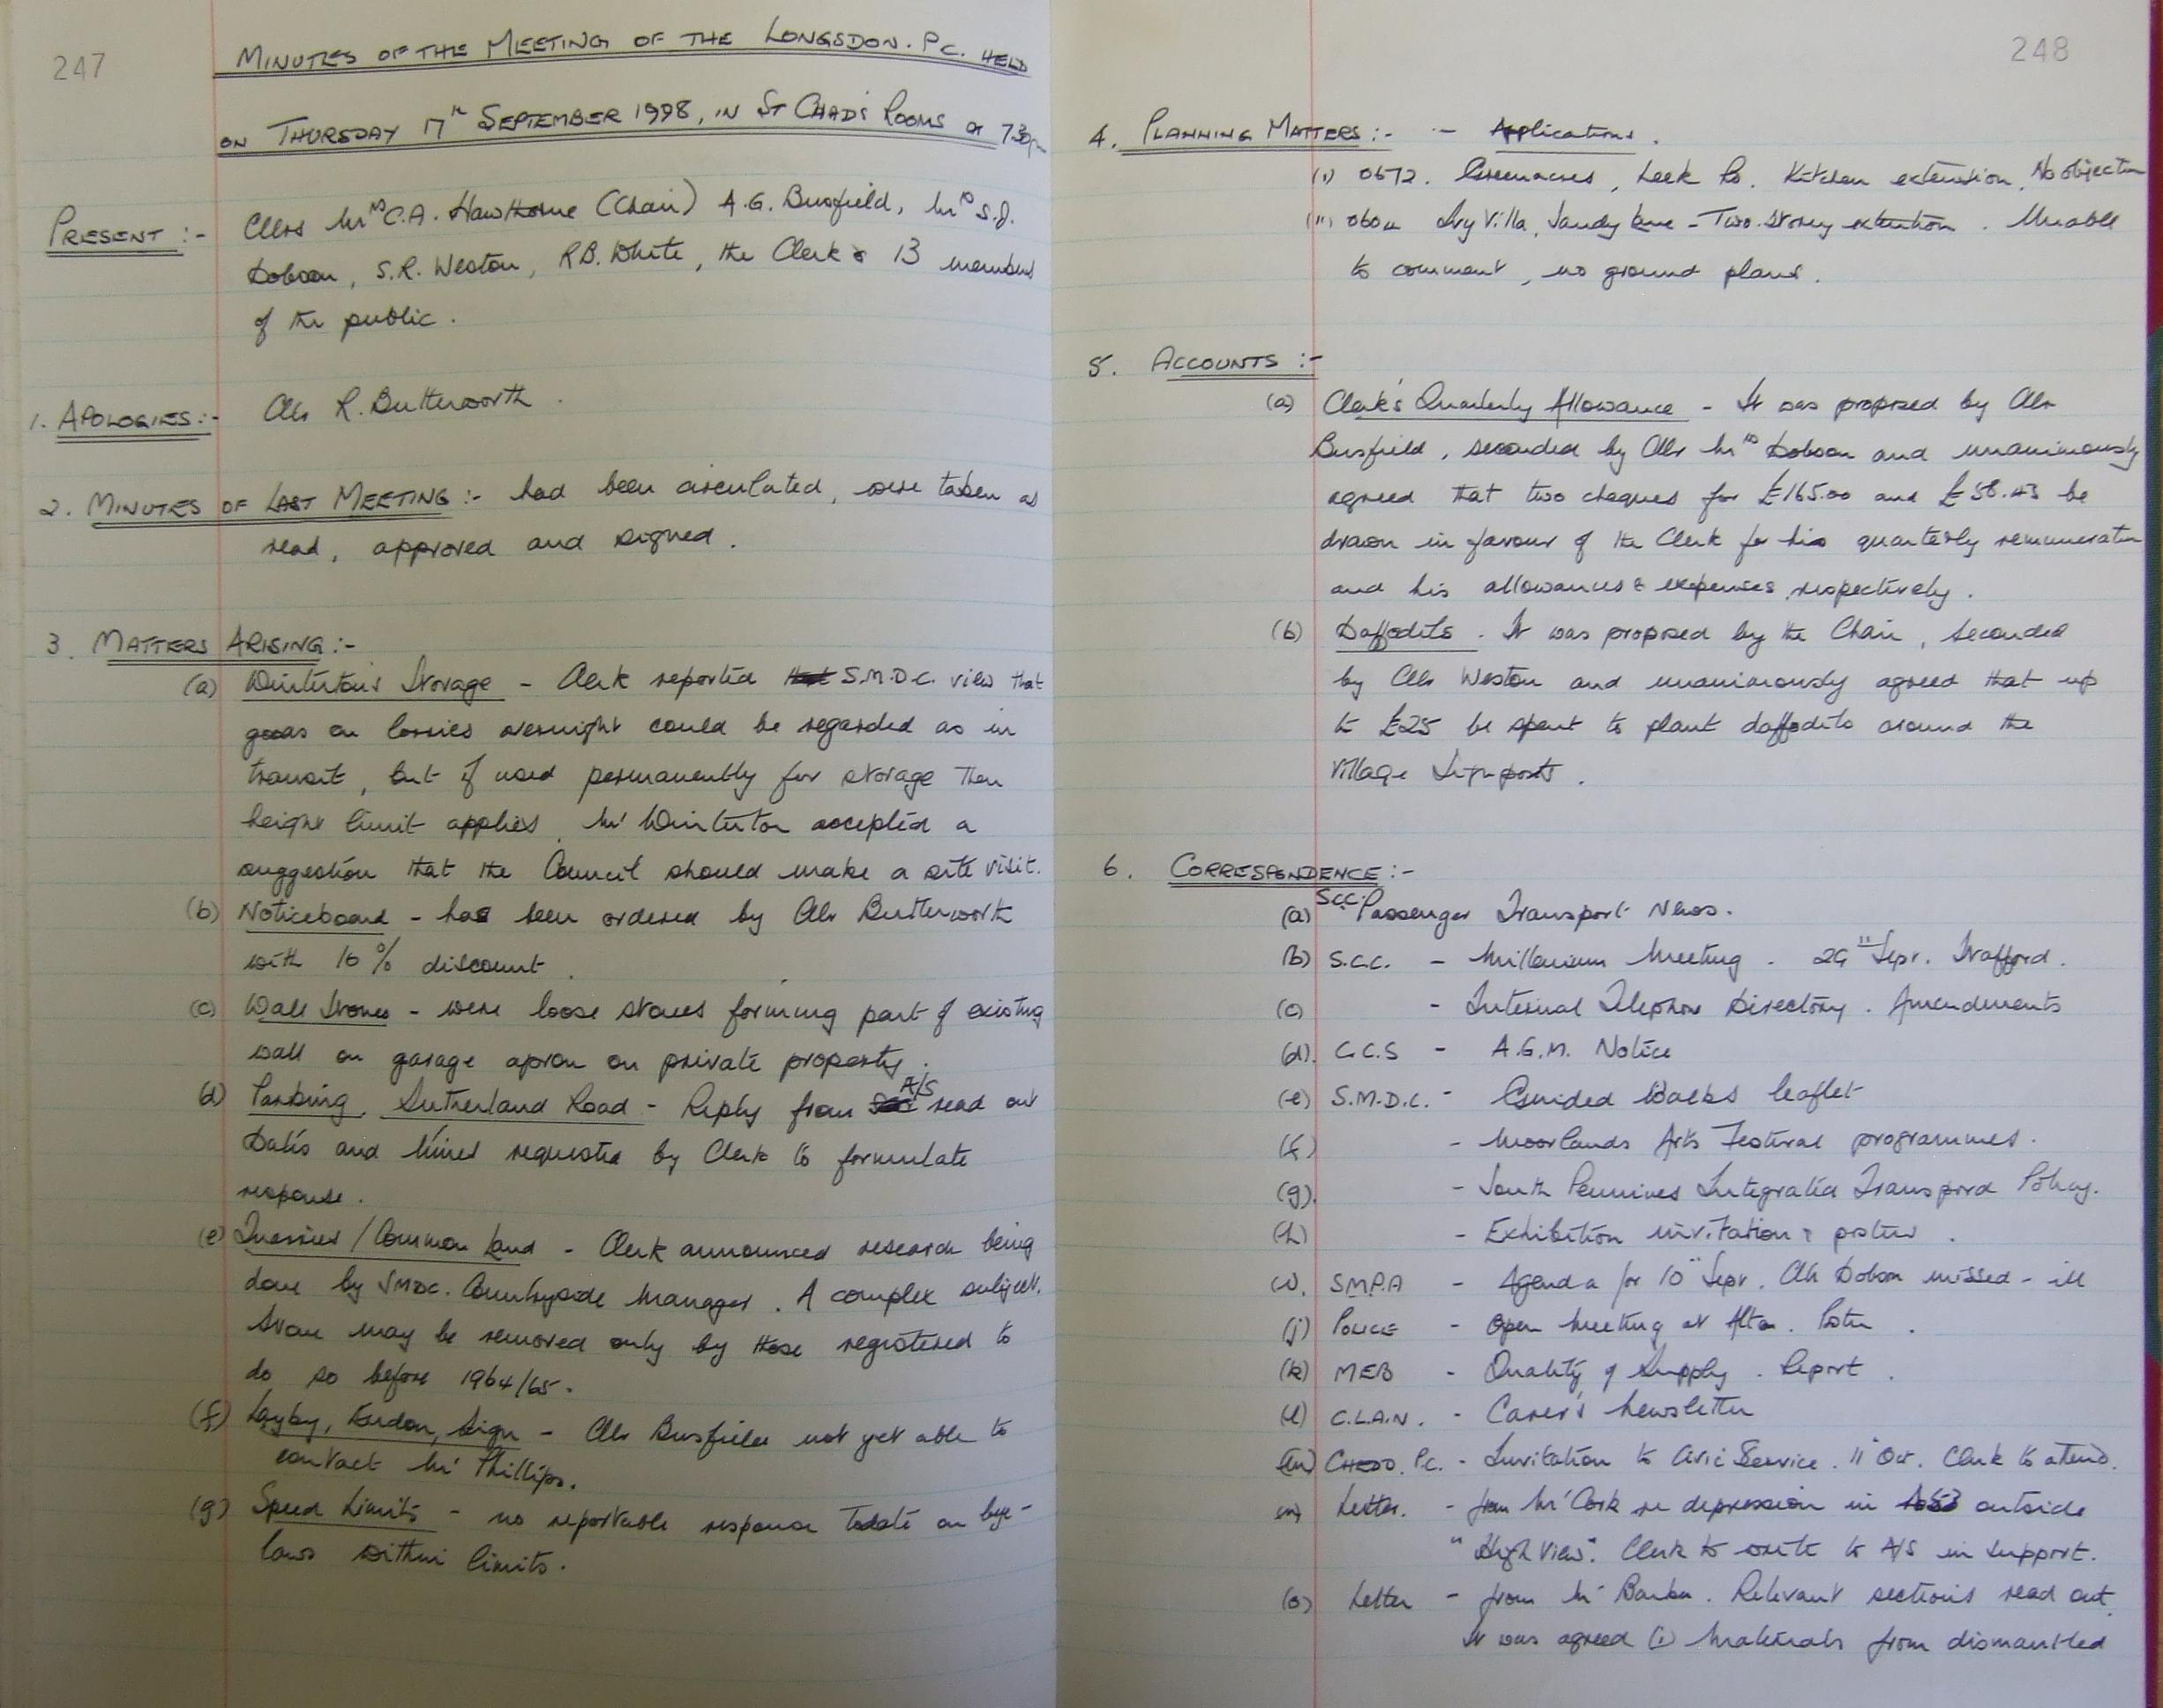 247
MINUTES OF THE MEETING OF THE LONGSDON. P.C. HELD
ON THURSDAY 17th SEPTEMBER 1998, IN ST CHAD'S ROOMS at 7.30pm
PRESENT :- Cllrs Mrs C.A. Hawthorne (Chair) A.G. Busfield, Mrs S.J.
Dobson, S.R. Weston, R.B. White, the Clerk & 13 members
of the public.
1. APOLOGIES:- Cllr R. Butterworth.
2. MINUTES OF LAST MEETING :- had been circulated, were taken as
read, approved and signed.
3. MATTERS ARISING :-
(a) Winterton's Storage - Clerk reported S.M.D.C. view that
goods on lorries overnight could be regarded as in
transit, but if used permanently for storage then
height limit applies. Mr Winterton accepted a
suggestion that the Council should make a site visit.
(b) Noticeboard - has been ordered by Cllr Butterworth
with 10% discount.
(c) Wall Stones - were loose stones forming part of existing
wall on garage apron on private property.
(d) Parking, Sutherland Road - Reply from A/S read out
Dates and times requested by Clerk to formulate
response.
(e) Quarries / Common Land - Clerk announced research being
done by SMDC. Countryside Manager. A complex subject.
Stone may be removed only by those registered to
do so before 1964/65.
(f) Layby, Endon, Sign - Cllr Busfield not yet able to
contact Mr Phillips.
(g) Speed Limits - no reportable response todate on bye-
laws within limits.
248
4. PLANNING MATTERS :- - Applications.
(i) 0672. Greenacres, Leek Rd. Kitchen extension. No objection
(ii) Ivy Villa, Sandy Lane - Two-storey extention. Unable
to comment, no ground plans.
5. ACCOUNTS :-
(a) Clerk's Quarterly Allowance - It was proposed by Cllr
Busfield, seconded by Cllr Mrs Dobson and unanimously
agreed that two cheques for £165.00 and £58.43 be
drawn in favour of the Clerk for his quarterly remuneration
and his allowances & expenses, respectively.
(b) Daffodils. It was proposed by the Chair, seconded
by Cllr Weston and unanimously agreed that up
to £25 be spent to plant daffodils around the
Village Signposts.
6. CORRESPONDENCE :-
(a) SCC. Passenger Transport News.
(b) S.C.C. - Millenium Meeting. 29th Sept. Stafford.
(c) - Internal Telephone Directory. Amendments
(d) C.C.S - A.G.M. Notice
(e) S.M.D.C. - Guided Walks leaflet
(f) - Moorlands Arts Festival programmes.
(g). - South Pennines Integrated Transport Policy.
(h) - Exhibition invitation & poster.
(i). S.M.P.A - Agenda for 10th Sept. Cllr Dobson missed - ill
(j) POLICE - Open Meeting at Alton. Poster.
(k) MEB - Quality of Supply. Report.
(l) C.L.A.N. - Carer's Newsletter
(m) CHEDD. P.C. - Invitation to Civic Service. 11th Oct. Clerk to attend.
(n) Letter. - from Mr Cork re depression in outside
"High View". Clerk to write to A/S in support.
(o) Letter - from Mr Barker. Relevant sections read out.
It was agreed (i) Materials from dismantled